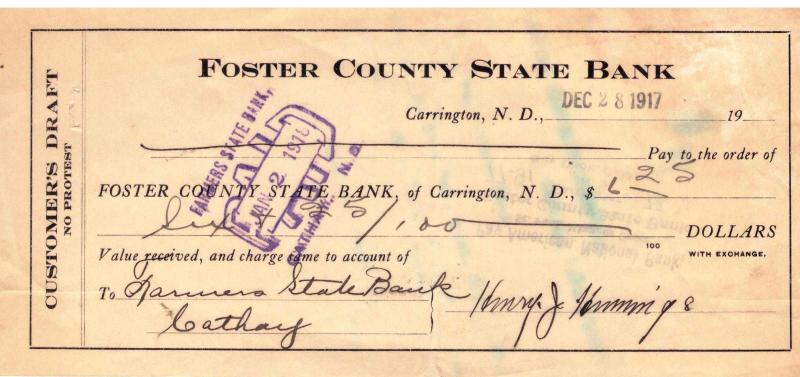 FOSTER COUNTY STATE BANK
Carrington, N. D., DEC 28 1917 19
Pay to the order of
FOSTER COUNTY STATE BANK, of Carrington, N. D., $ 6 25
Six & 25/100 DOLLARS
100 WITH EXCHANGE.
Value received, and charge same to account of
To Farmers State Bank
Cathay
Henry J Hennings
CUSTOMER'S DRAFT
NO PROTEST
FARMERS STATE BANK,
PAID
JAN 2 1918
CATHAY, N. D.